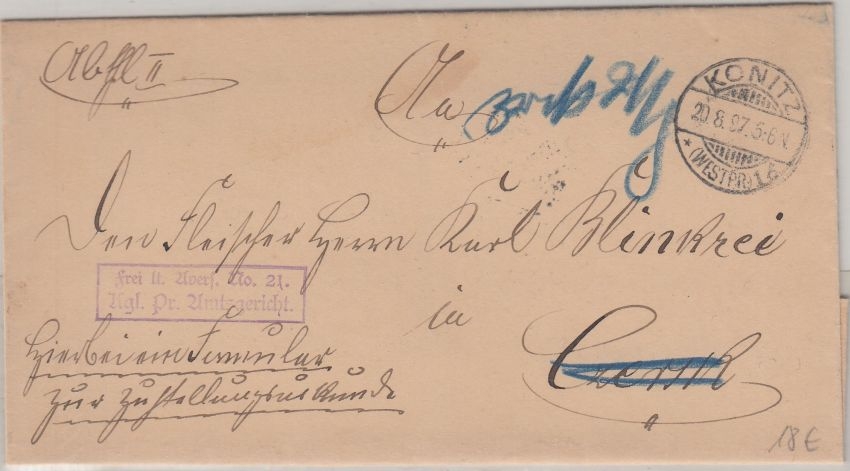 Abtl II
An
KONITZ
20.8.97.5-6N.
* (WESTPR.) 1 c
Den Fleischer Herrn Karl Klinkrei
Frei lt. Avers. No. 21.
Kgl. Pr. Amtsgericht.
in
Hierbei ein Formular
zur Zustellungsurkunde
Czersk
18€